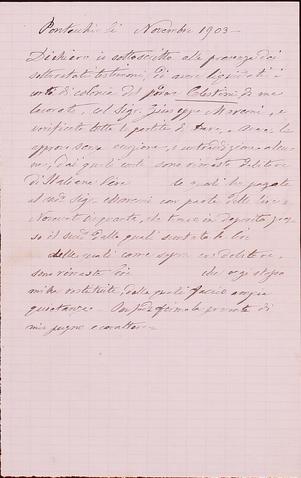 Pontecchio li Novembre 1903 -
Dichiaro io sottoscritto alla presenza dei
sottonotati testimoni, di avere liquidati i
conti di colonia del fondo Celestini di me
lavorato, col Sig. Giuseppe Moreni, e
verificato tutte le partite di Dare, e Avere le
approvo senza eccezione, e contradizione alcu=
ne, dai quali conti sono rimasto debitore
di Italiane Lire le quali ho pagate
al sud. Sig. Moreni con parte delle Lire
Novecentoquaranta, che tenevo in deposito pres=
so il sud. dalle quali scontate le lire
delle quali come sopra ero debitore,
sono rimaste lire che oggi stesso
mi ha restituite, delle quali faccio ampia
quietanza. In fede firmo la presente di
mio pugno e carattere